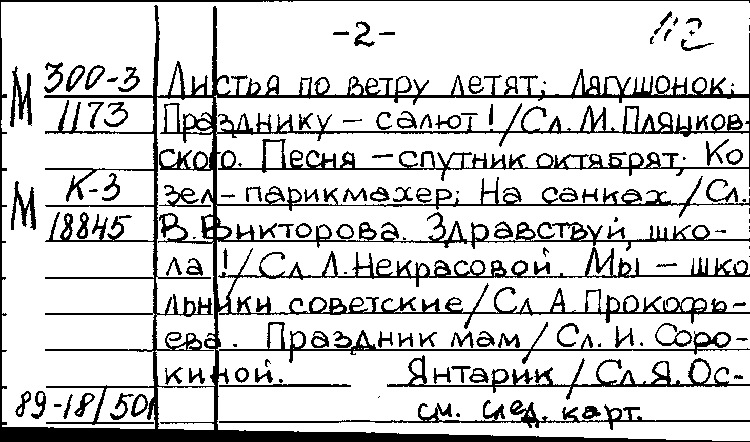 -2- 112
М 300-3 Листья по ветру летят; Лягушонок;
1173 Празднику – салют!/Сл. М. Пляцков-
ского. Песня – спутник октябрят; Ко
М К-3 зел – парикмахер; На санках/Сл.
18845 В. Викторова. Здравствуй, шко-
ла!/Сл Л. Некрасовой. Мы – шко
льники советские/Сл А. Прокофь-
ева. Праздник мам/Сл. И. Соро-
киной. Янтарик/Сл. Я. Ос-
89-18/501 см. след. карт.